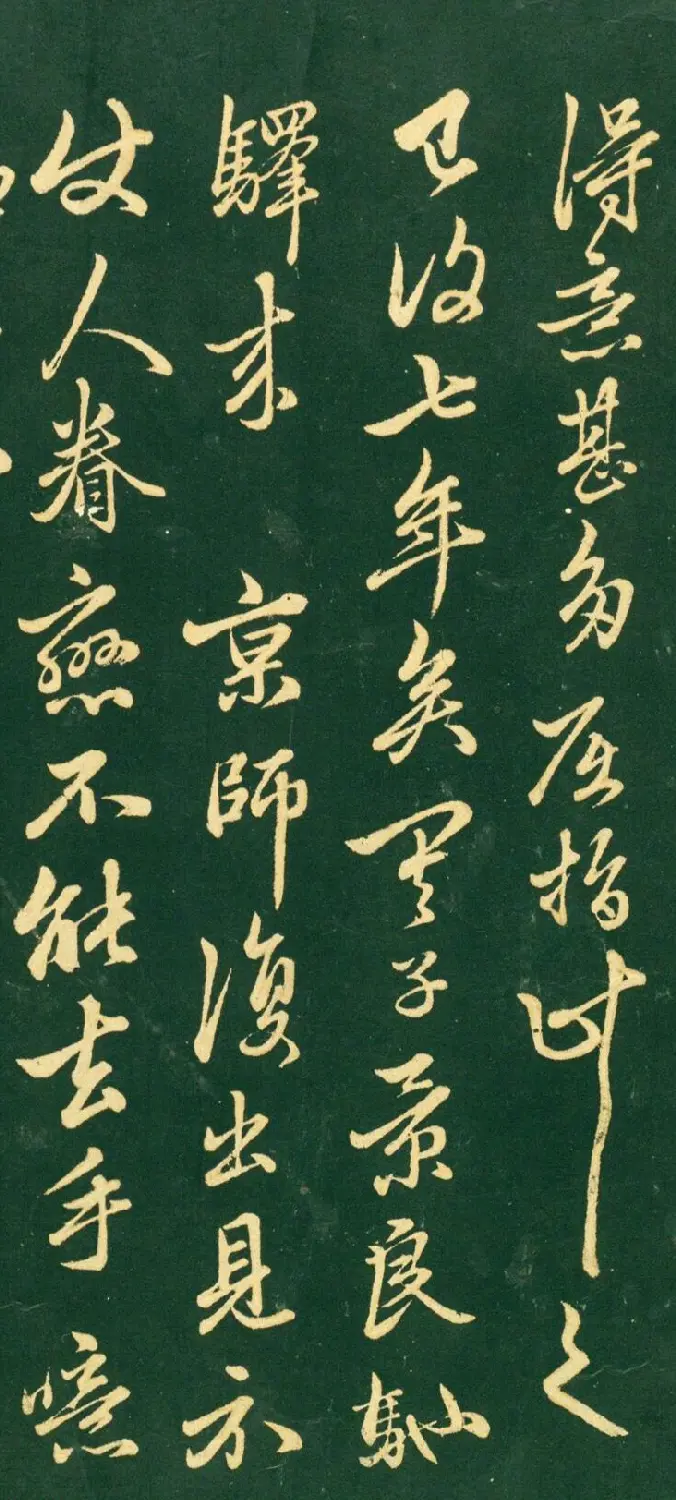 得意甚多屈指計之
已七年矣子景良馳
驛來京師復出見示
使人眷戀不能去手噫